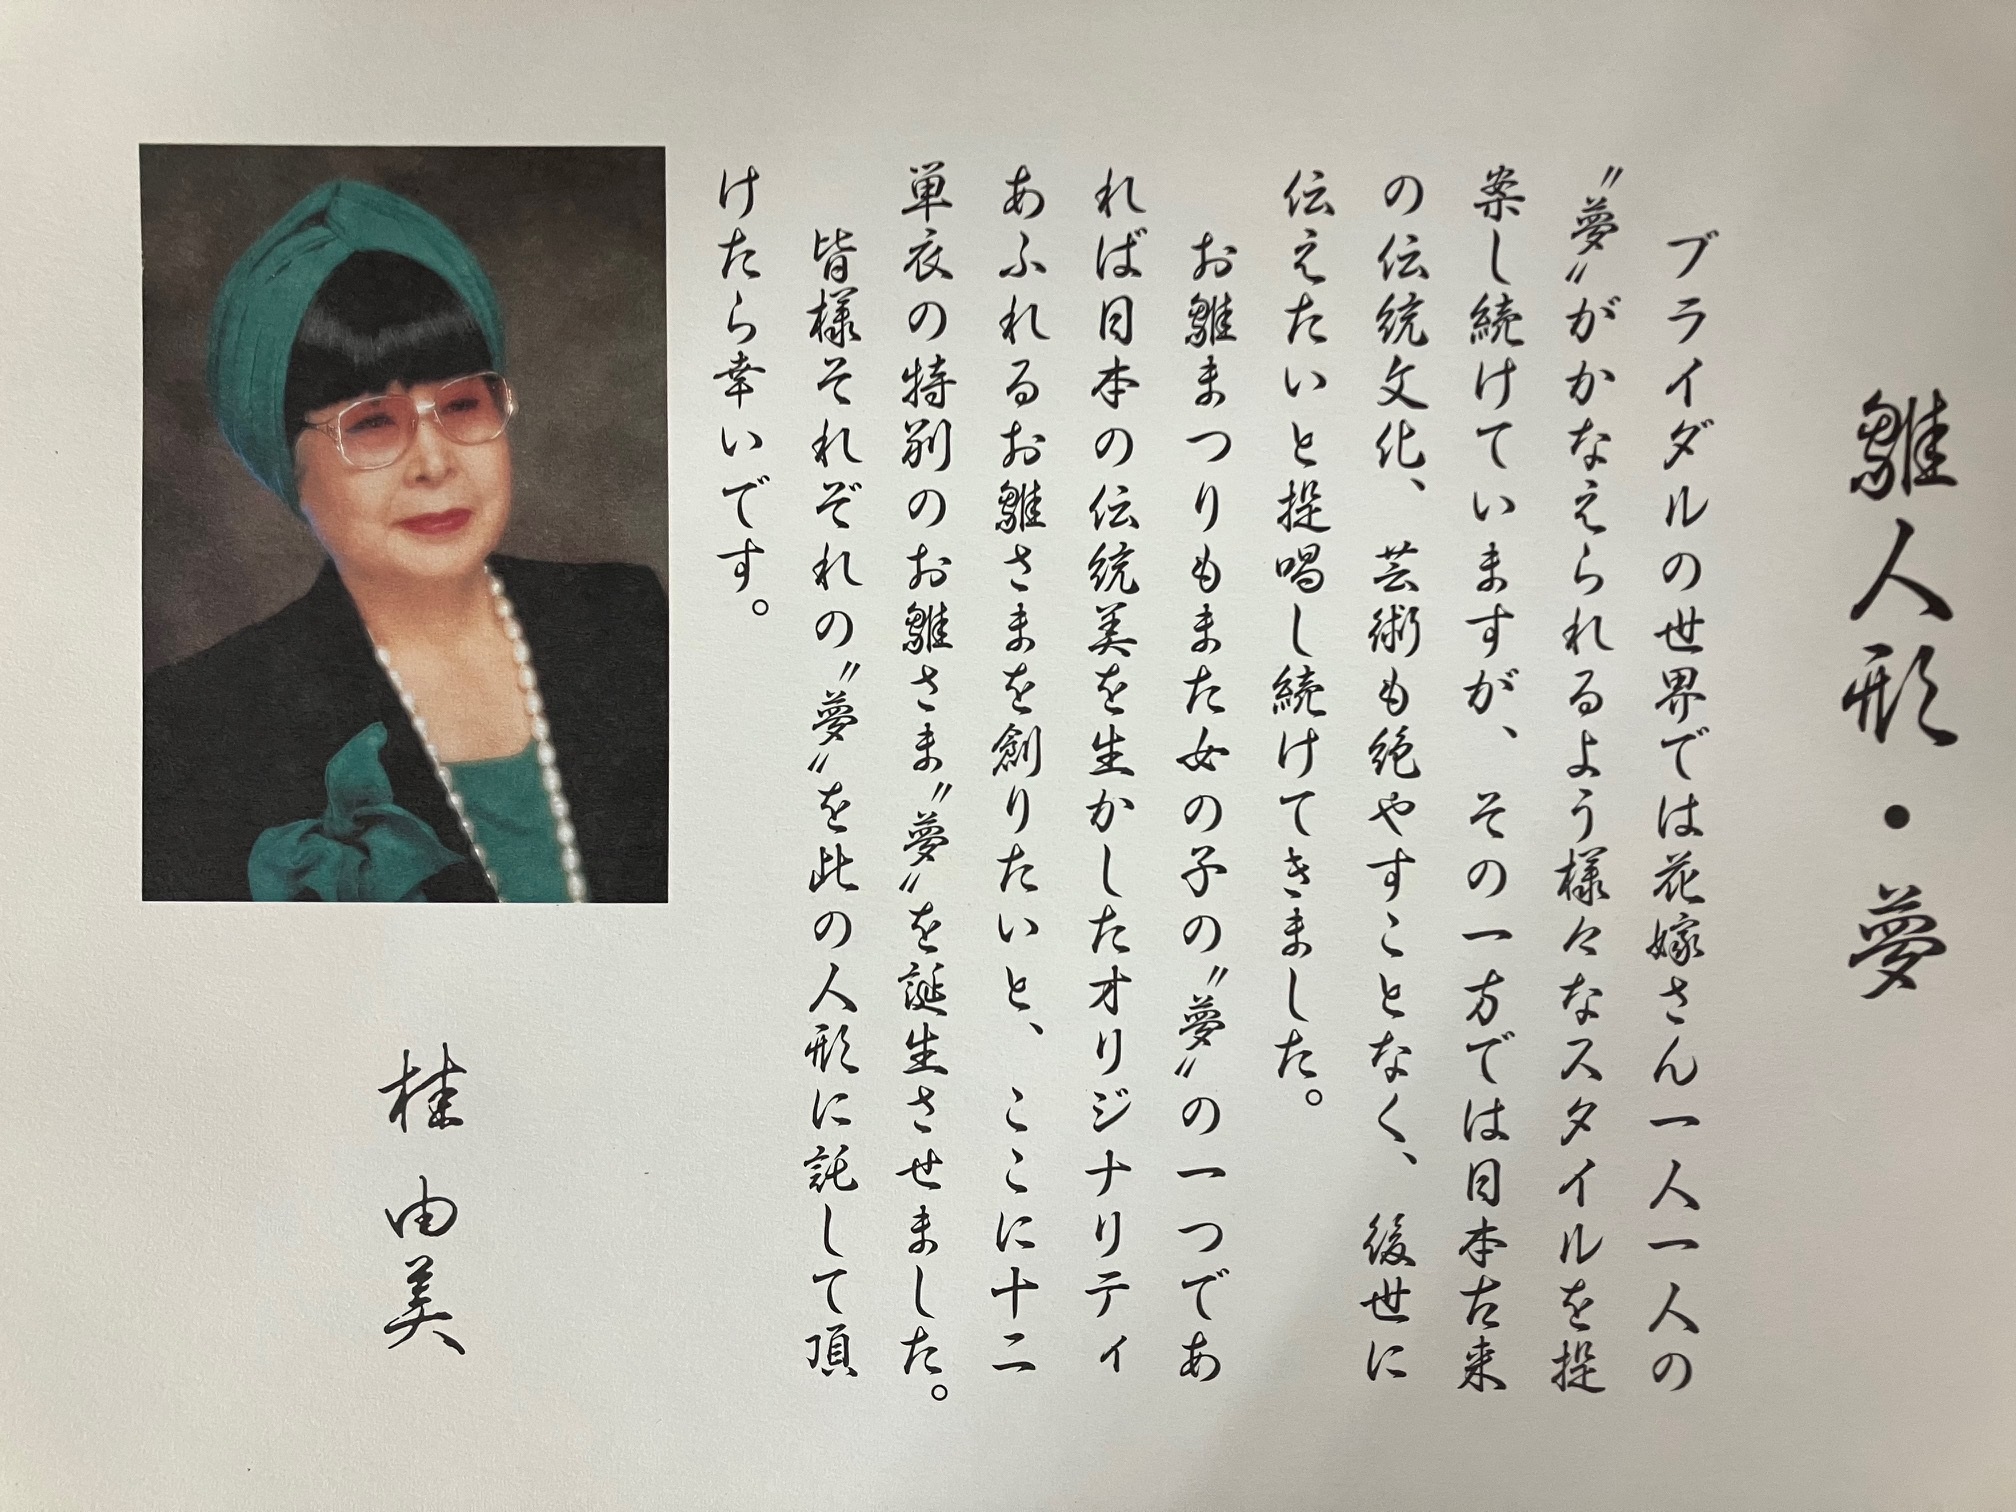 雛人形・夢
ブライダルの世界では花嫁さん一人一人の
〝夢〟がかなえられるよう様々なスタイルを提
案し続けていますが、その一方では日本古来
の伝統文化、芸術も絶やすことなく、後世に
伝えたいと提唱し続けてきました。
お雛まつりもまた女の子の〝夢〟の一つであ
れば日本の伝統美を生かしたオリジナリティ
あふれるお雛さまを創りたいと、ここに十二
単衣の特別のお雛さま〝夢〟を誕生させました。
皆様それぞれの〝夢〟を此の人形に託して頂
けたら幸いです。
桂由美